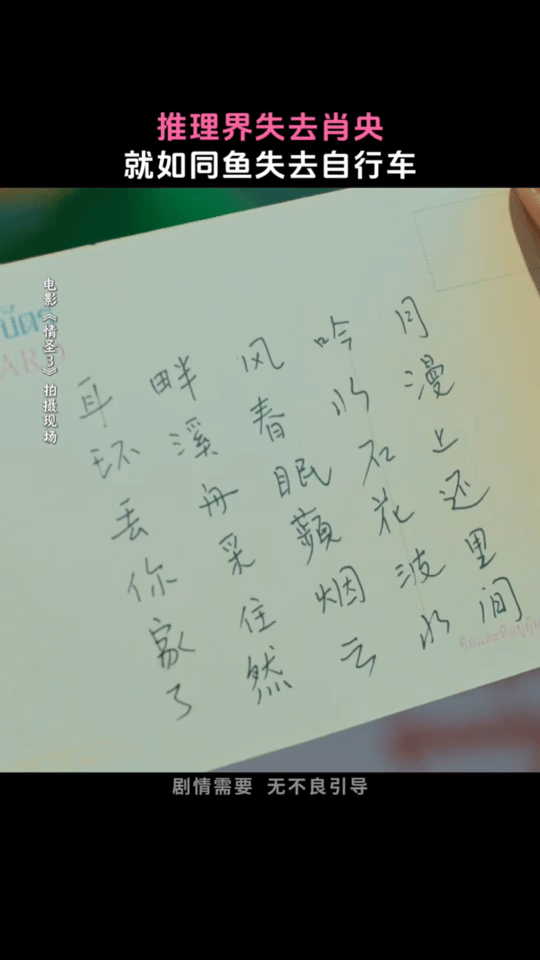 推理界失去肖央
就如同鱼失去自行车
电影《情圣3》拍摄现场
耳畔风吟月
环溪春水漫
丢舟眠石上
你采蘋花还
家住烟波里
了然云水间
剧情需要 无不良引导